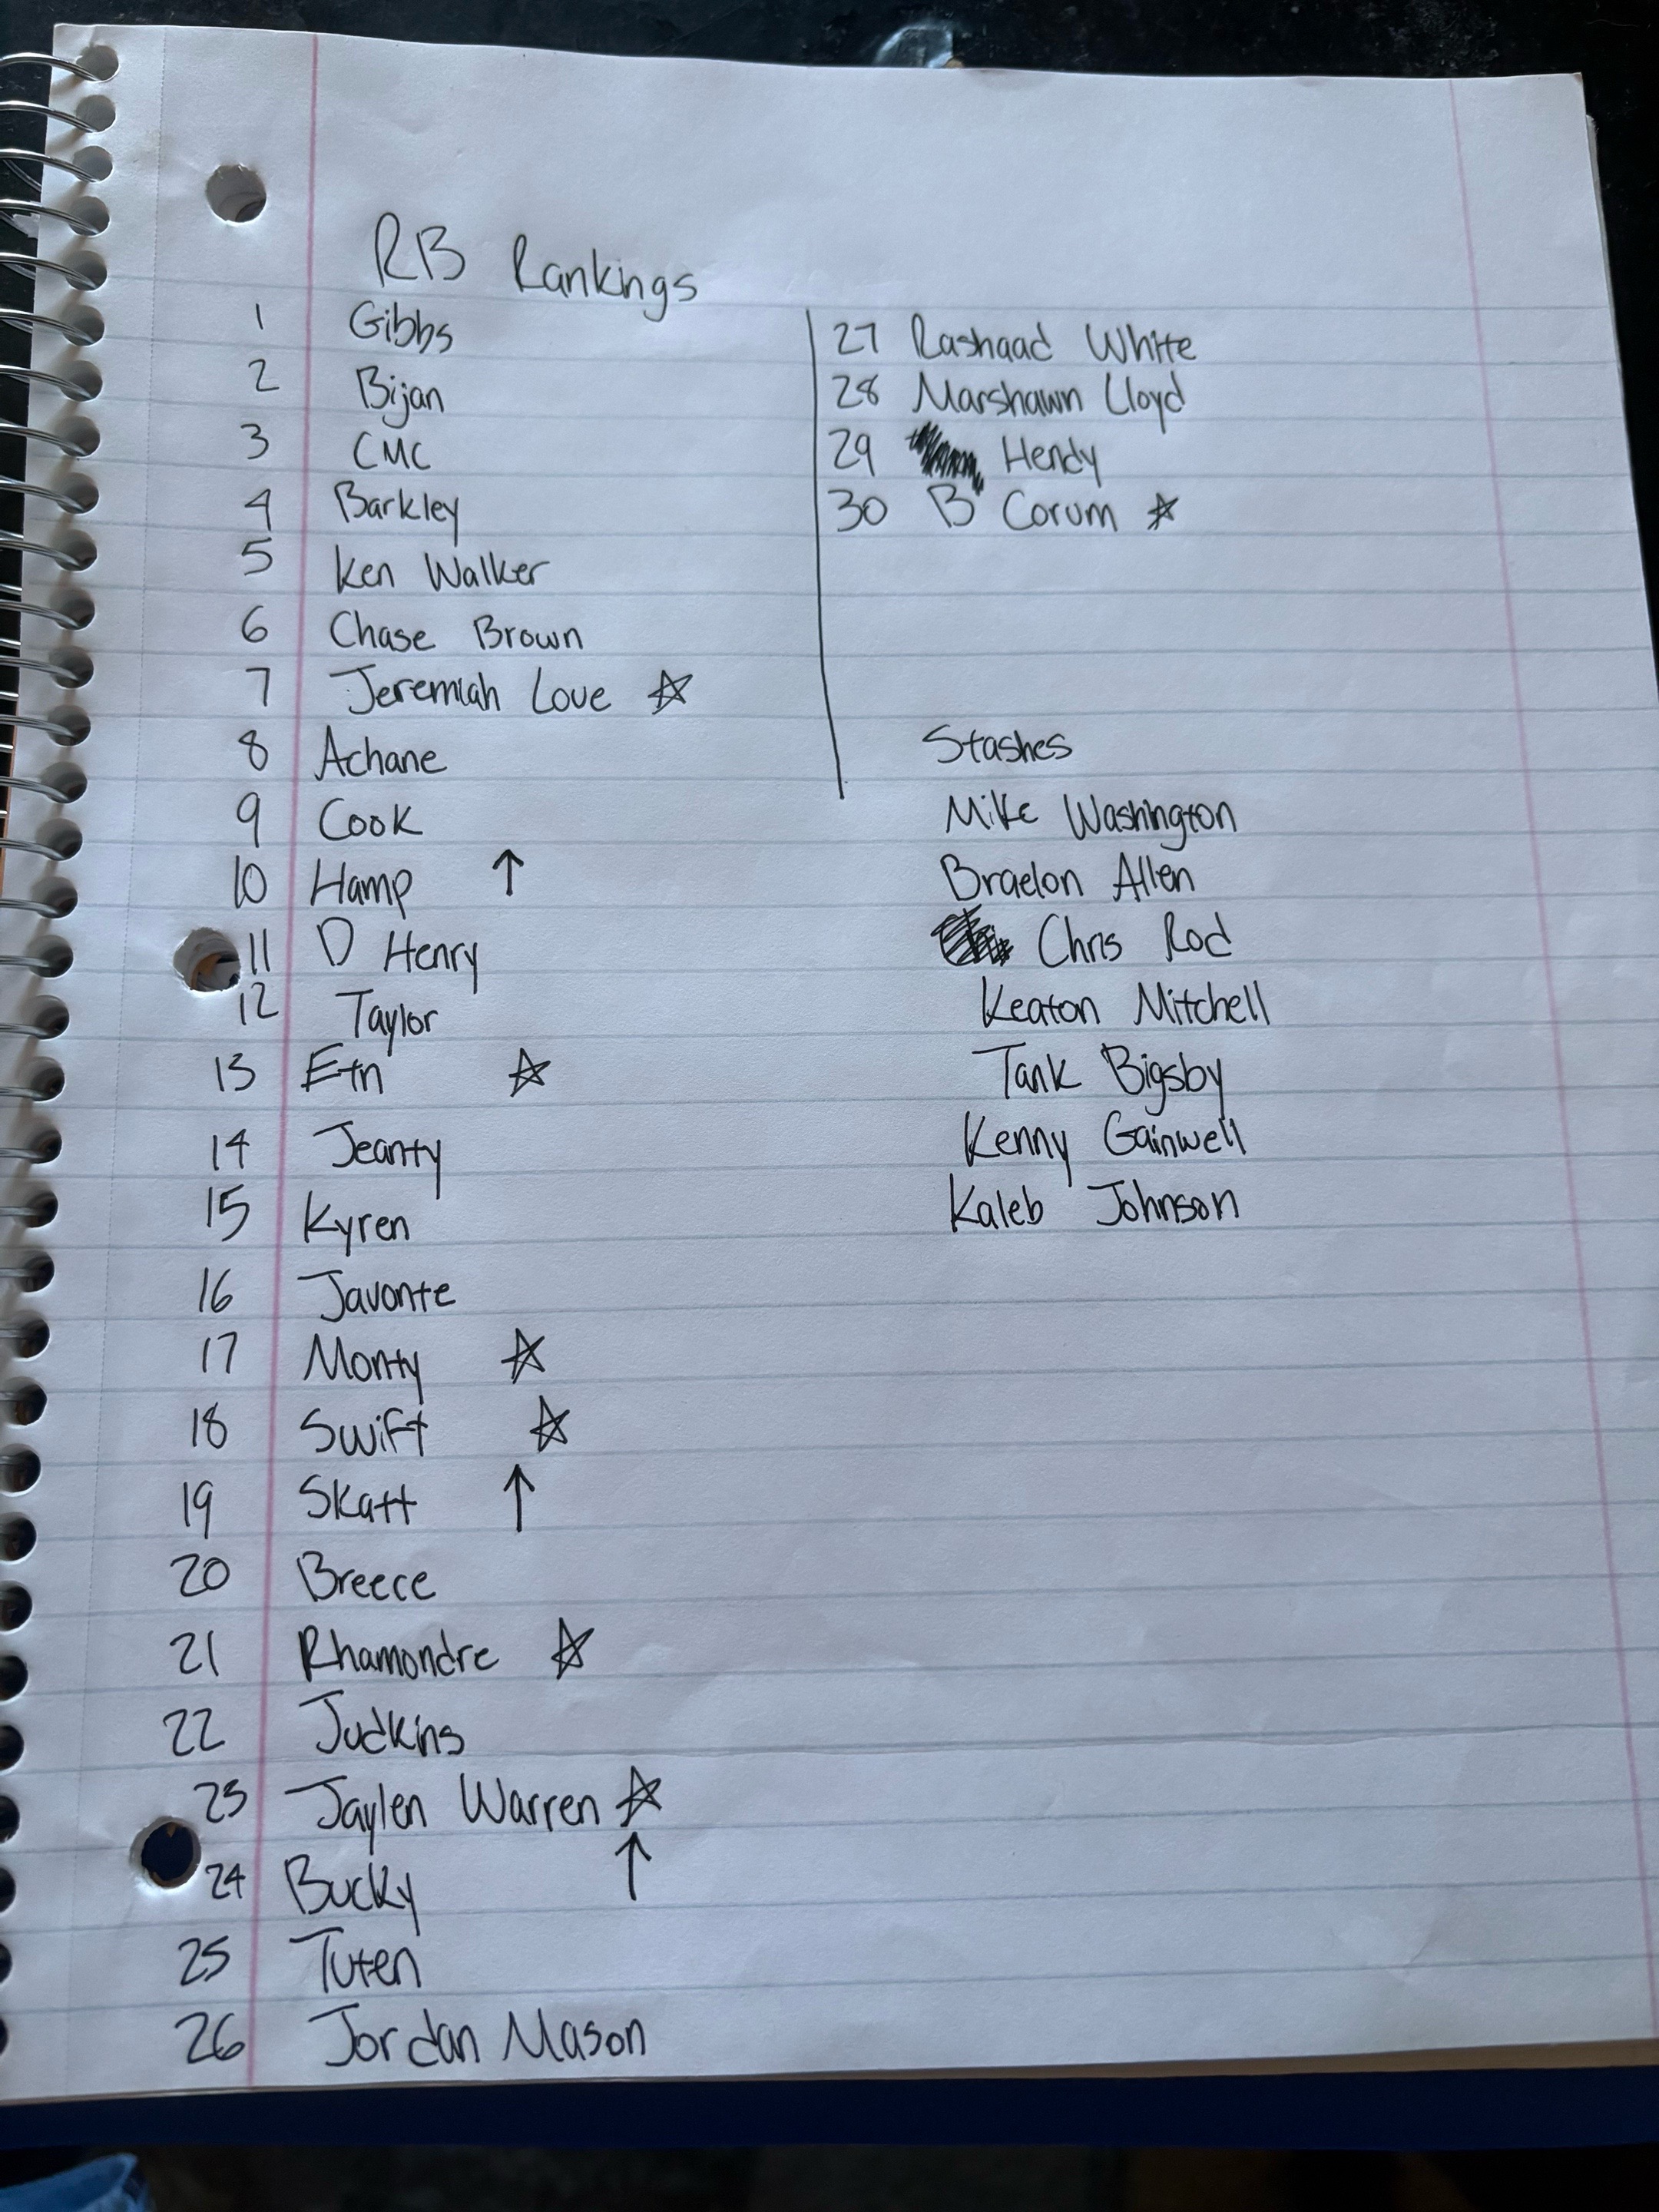 RB Rankings
1 Gibbs
2 Bijan
3 CMC
4 Barkley
5 Ken Walker
6 Chase Brown
7 Jeremiah Love ☆
8 Achane
9 Cook
10 Hamp ↑
11 D Henry
12 Taylor
13 Etn ☆
14 Jeanty
15 Kyren
16 Javonte
17 Monty ☆
18 Swift ☆
19 Skatt ↑
20 Breece
21 Rhamondre ☆
22 Judkins
23 Jaylen Warren ☆
24 Bucky ↑
25 Tuten
26 Jordan Mason
27 Rashaad White
28 Marshawn Lloyd
29 Hendy
30 B Corum ☆
Stashes
Mike Washington
Braelon Allen
Chris Rod
Keaton Mitchell
Tank Bigsby
Kenny Gainwell
Kaleb Johnson